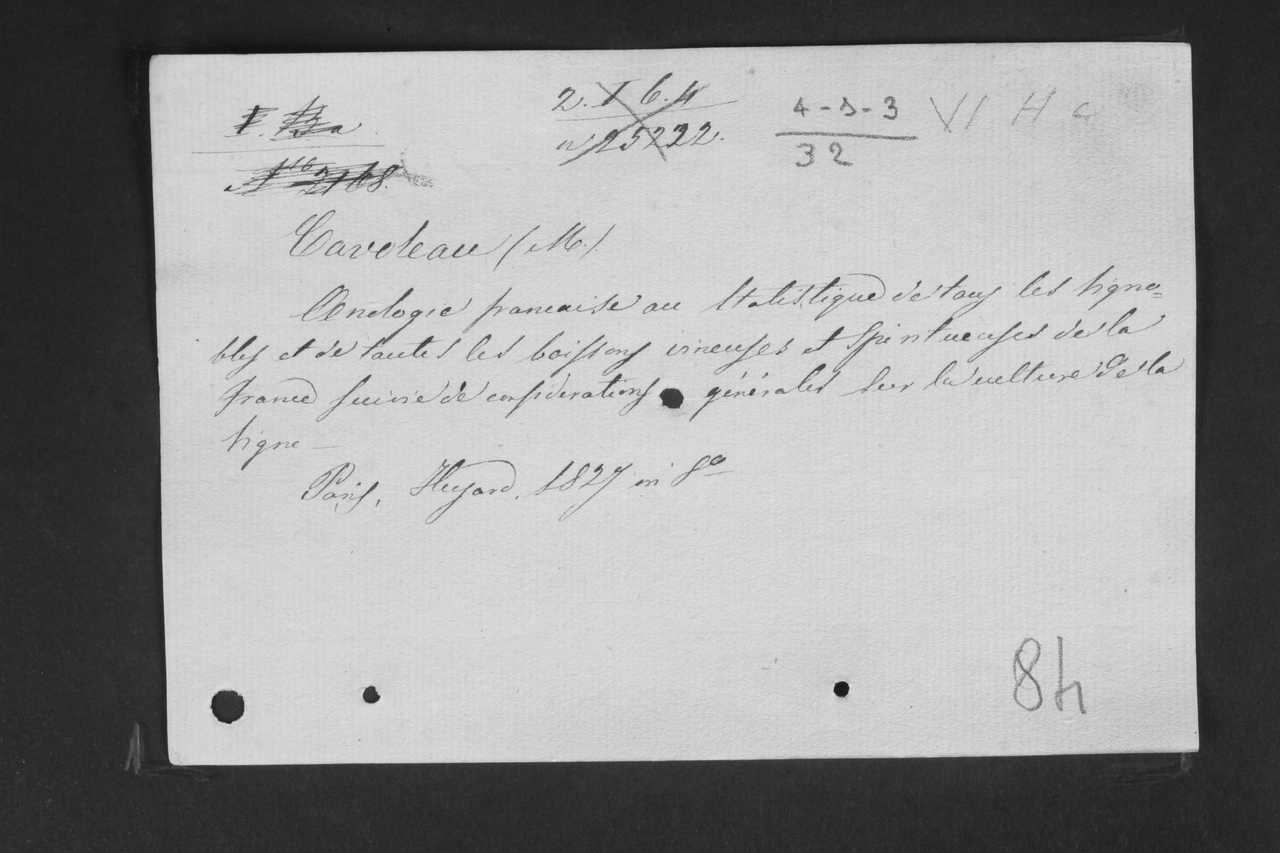 2. I 6.4
n 25222.
4-5-3
32
VI H
Nro 2168.
Cavoleau (M.)
Œnologie francaise ou Statistique de tous les Vigno=
bles et de toutes les boissons vineuses et Spiritueuses de la
France suivie de considerations générales sur la culture de la
Vigne —
Paris, Huzard, 1827 in 8º
84